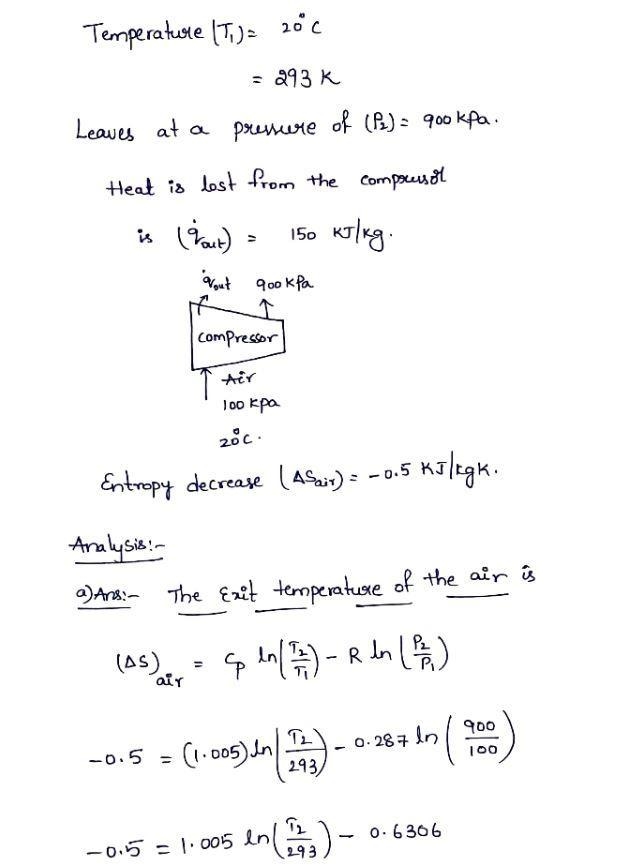 Temperature (T₁) = 20°C
= 293 K
Leaves at a pressure of (P₂) = 900 kpa.
Heat is lost from the compressor
is (q̇out) = 150 KJ/kg.
q̇out 900 kpa
compressor
Air
100 kpa
20°c.
Entropy decrease (ΔSair) = -0.5 KJ/kgK.
Analysis:-
a)Ans:- The Exit temperature of the air is
(ΔS)air = Cp ln(T₂/T₁) - R ln(P₂/P₁)
-0.5 = (1.005) ln(T₂/293) - 0.287 ln(900/100)
-0.5 = 1.005 ln(T₂/293) - 0.6306